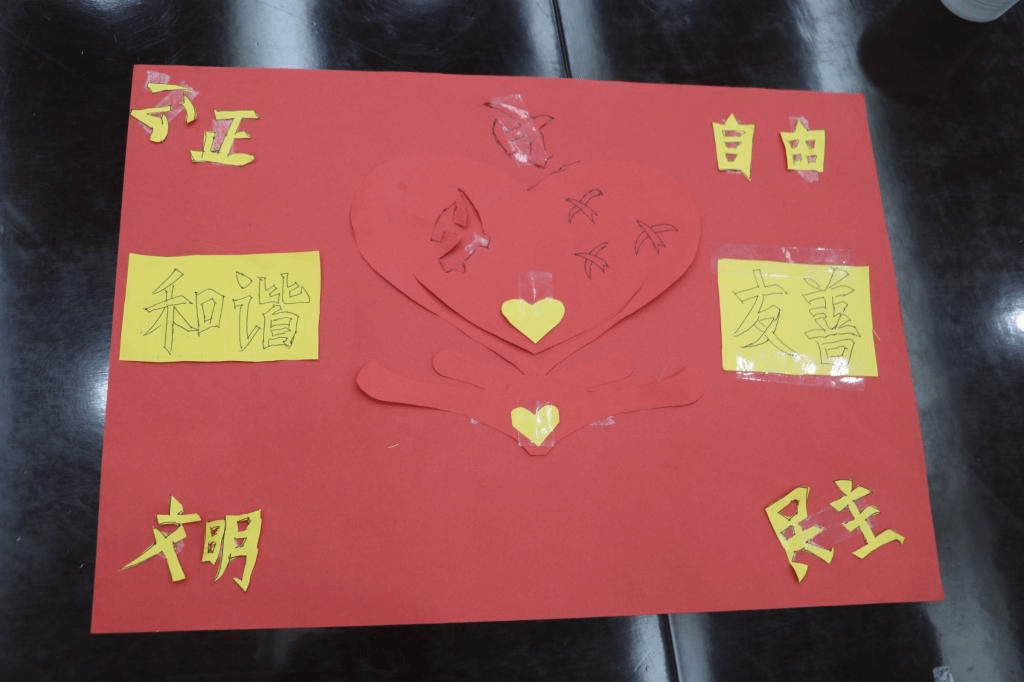 公正
自由
和谐
友善
文明
民主